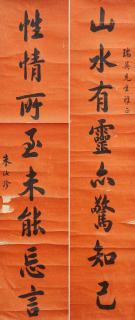 瑞英先生雅正
山水有靈亦驚知己
性情所至未能忘言
朱汝珍